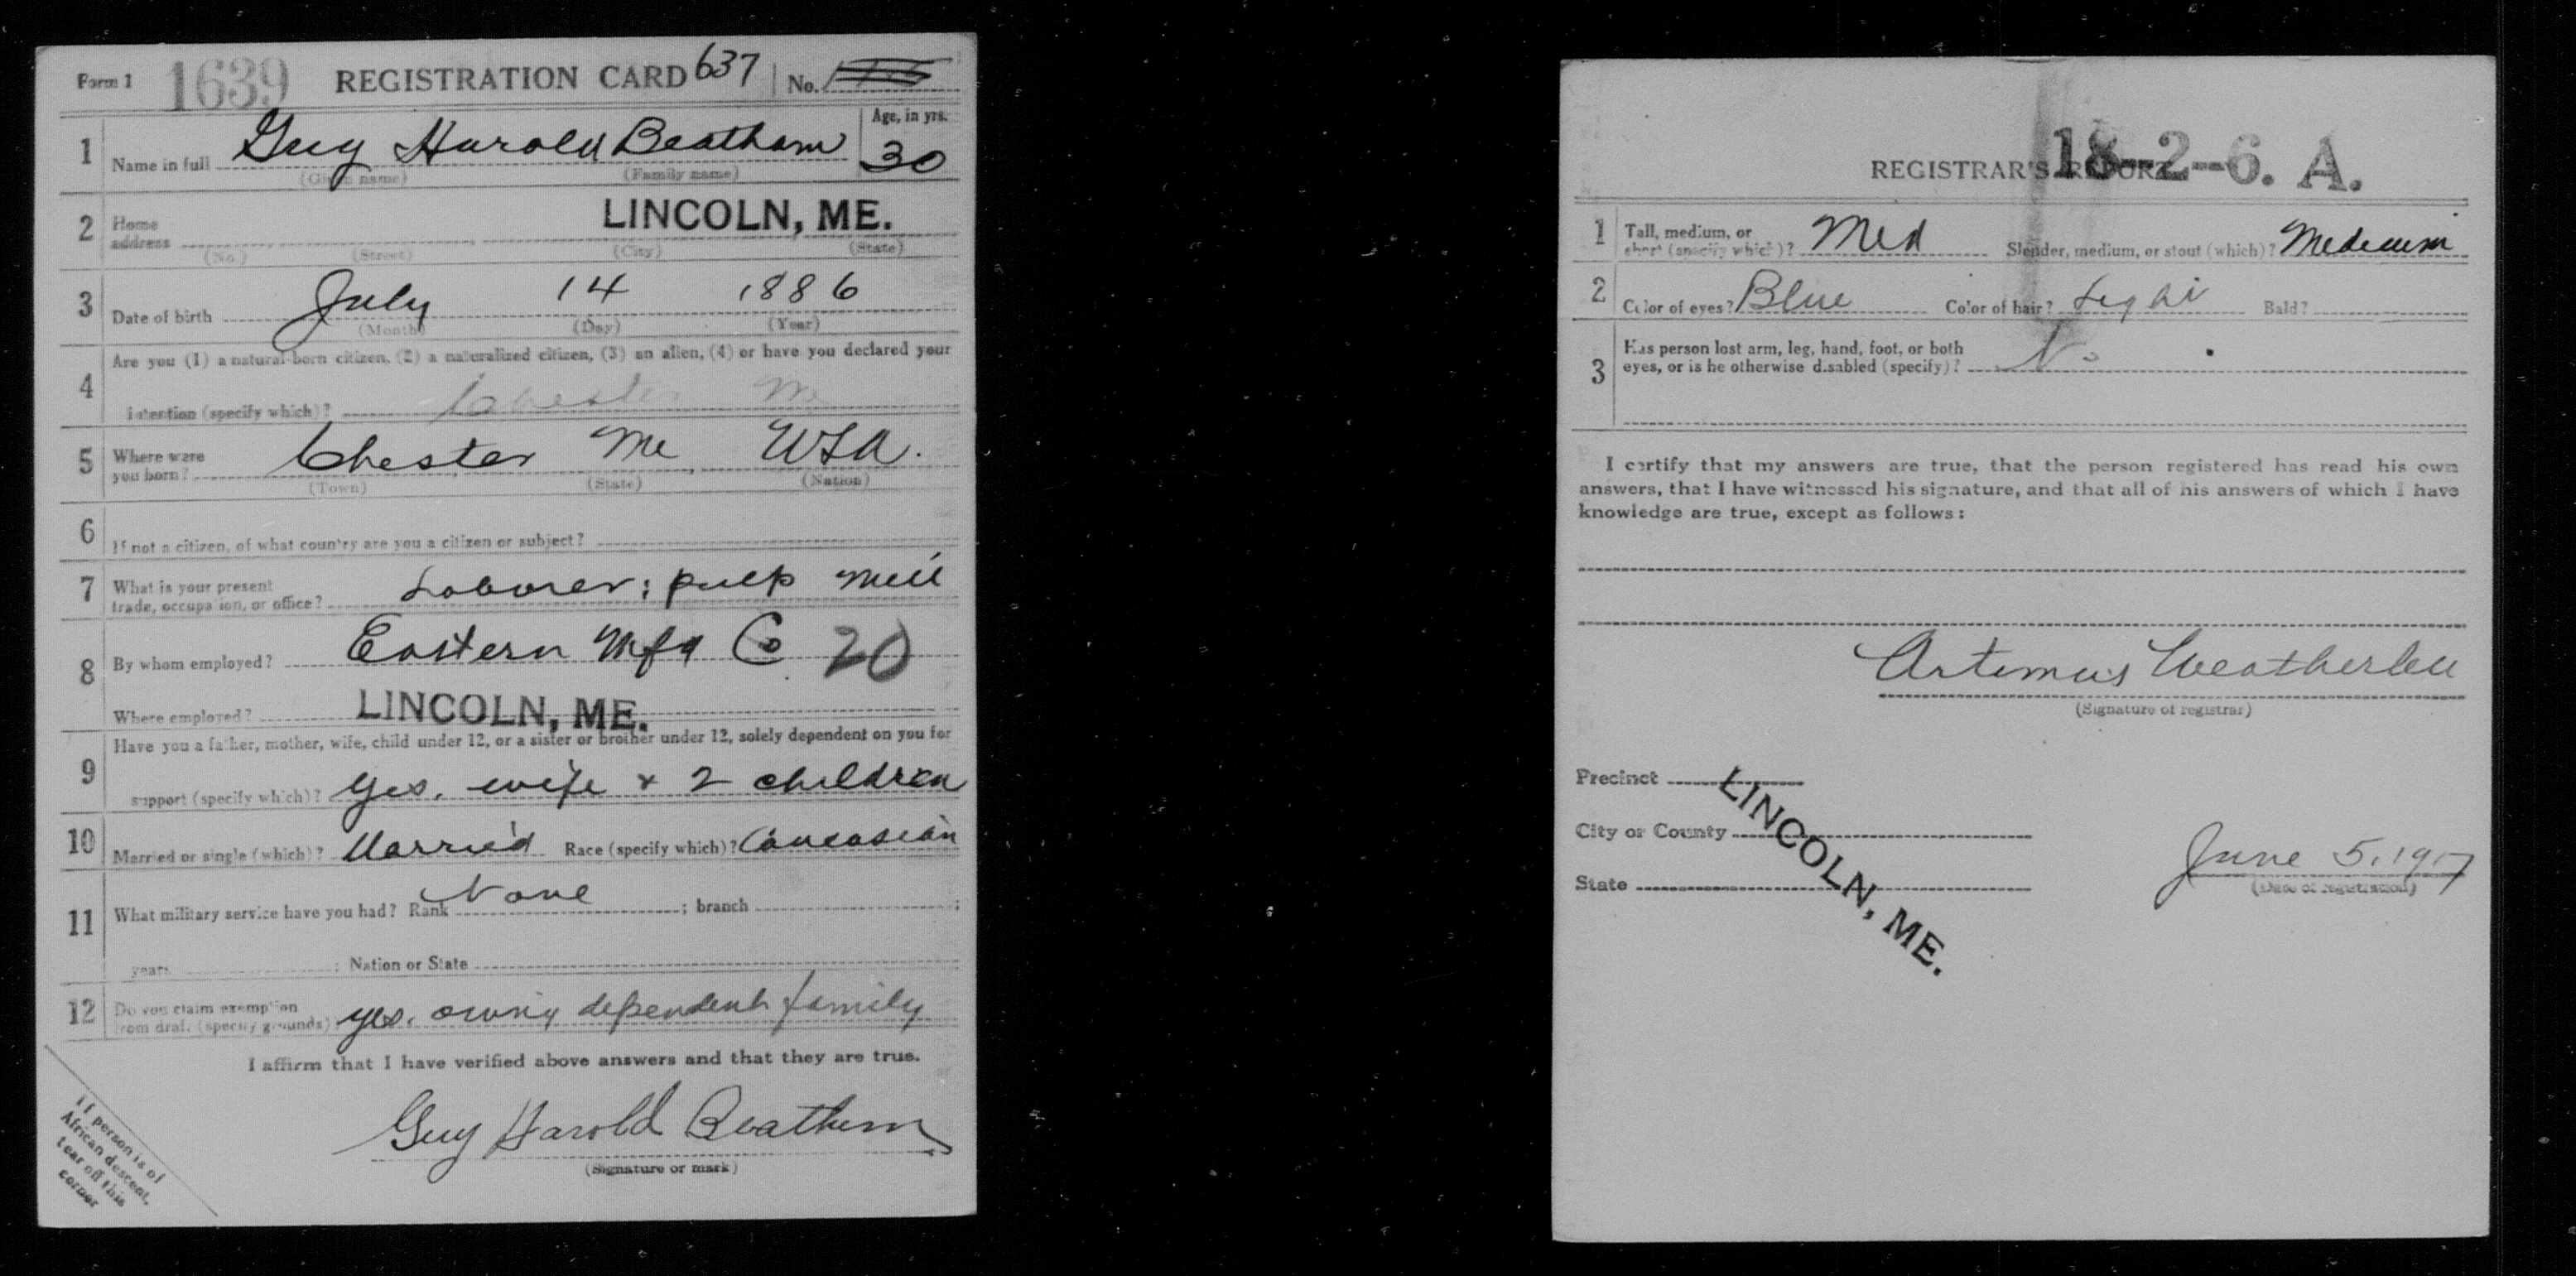 Form 1 1639 REGISTRATION CARD 637 No.
Age, in yrs.
1 Name in full Guy Harold Beatham 30
(Given name) (Family name)
2 Home address LINCOLN, ME.
(No.) (Street) (City) (State)
3 Date of birth July 14 1886
(Month) (Day) (Year)
Are you (1) a natural-born citizen, (2) a naturalized citizen, (3) an alien, (4) or have you declared your
4 intention (specify which)? Chester Me
5 Where were you born? Chester Me USA.
(Town) (State) (Nation)
6 If not a citizen, of what country are you a citizen or subject?
7 What is your present trade, occupation, or office? Laborer; pulp mill
8 By whom employed? Eastern Mfg Co 20
Where employed? LINCOLN, ME.
Have you a father, mother, wife, child under 12, or a sister or brother under 12, solely dependent on you for
9 support (specify which)? Yes. wife & 2 children
10 Married or single (which)? Married Race (specify which)? Caucasian
11 What military service have you had? Rank None ; branch ;
years ; Nation or State
12 Do you claim exemption from draft (specify grounds)? yes. owing dependent family
I affirm that I have verified above answers and that they are true.
Guy Harold Beathem
(Signature or mark)
If person is of
African descent,
tear off this
corner
18--2--6. A.
REGISTRAR'S REPORT
1 Tall, medium, or short (specify which)? Med Slender, medium, or stout (which)? Medium
2 Color of eyes? Blue Color of hair? Light Bald?
3 Has person lost arm, leg, hand, foot, or both
eyes, or is he otherwise disabled (specify)? No
I certify that my answers are true, that the person registered has read his own
answers, that I have witnessed his signature, and that all of his answers of which I have
knowledge are true, except as follows:
Artemus Weatherbee
(Signature of registrar)
Precinct
City or County
State
LINCOLN, ME.
June 5, 1917
(Date of registration)